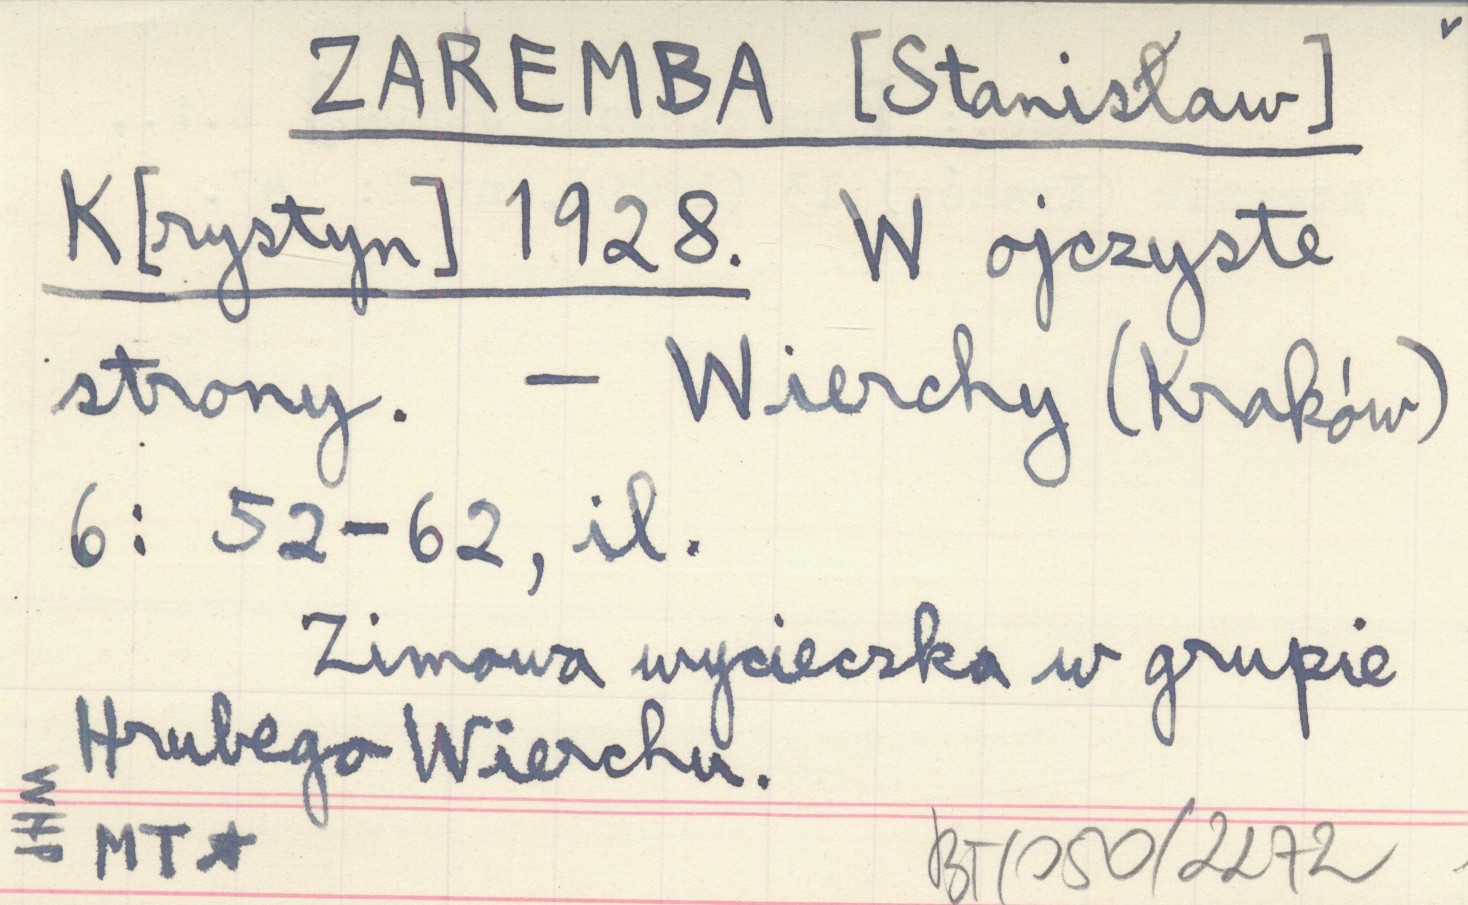 ZAREMBA [Stanisław]
K[rystyn] 1928. W ojczyste
strony. — Wierchy (Kraków)
6: 52-62, il.
Zimowa wycieczka w grupie
Hrubego Wierchu.
WHP
MT★
BT/050/2272